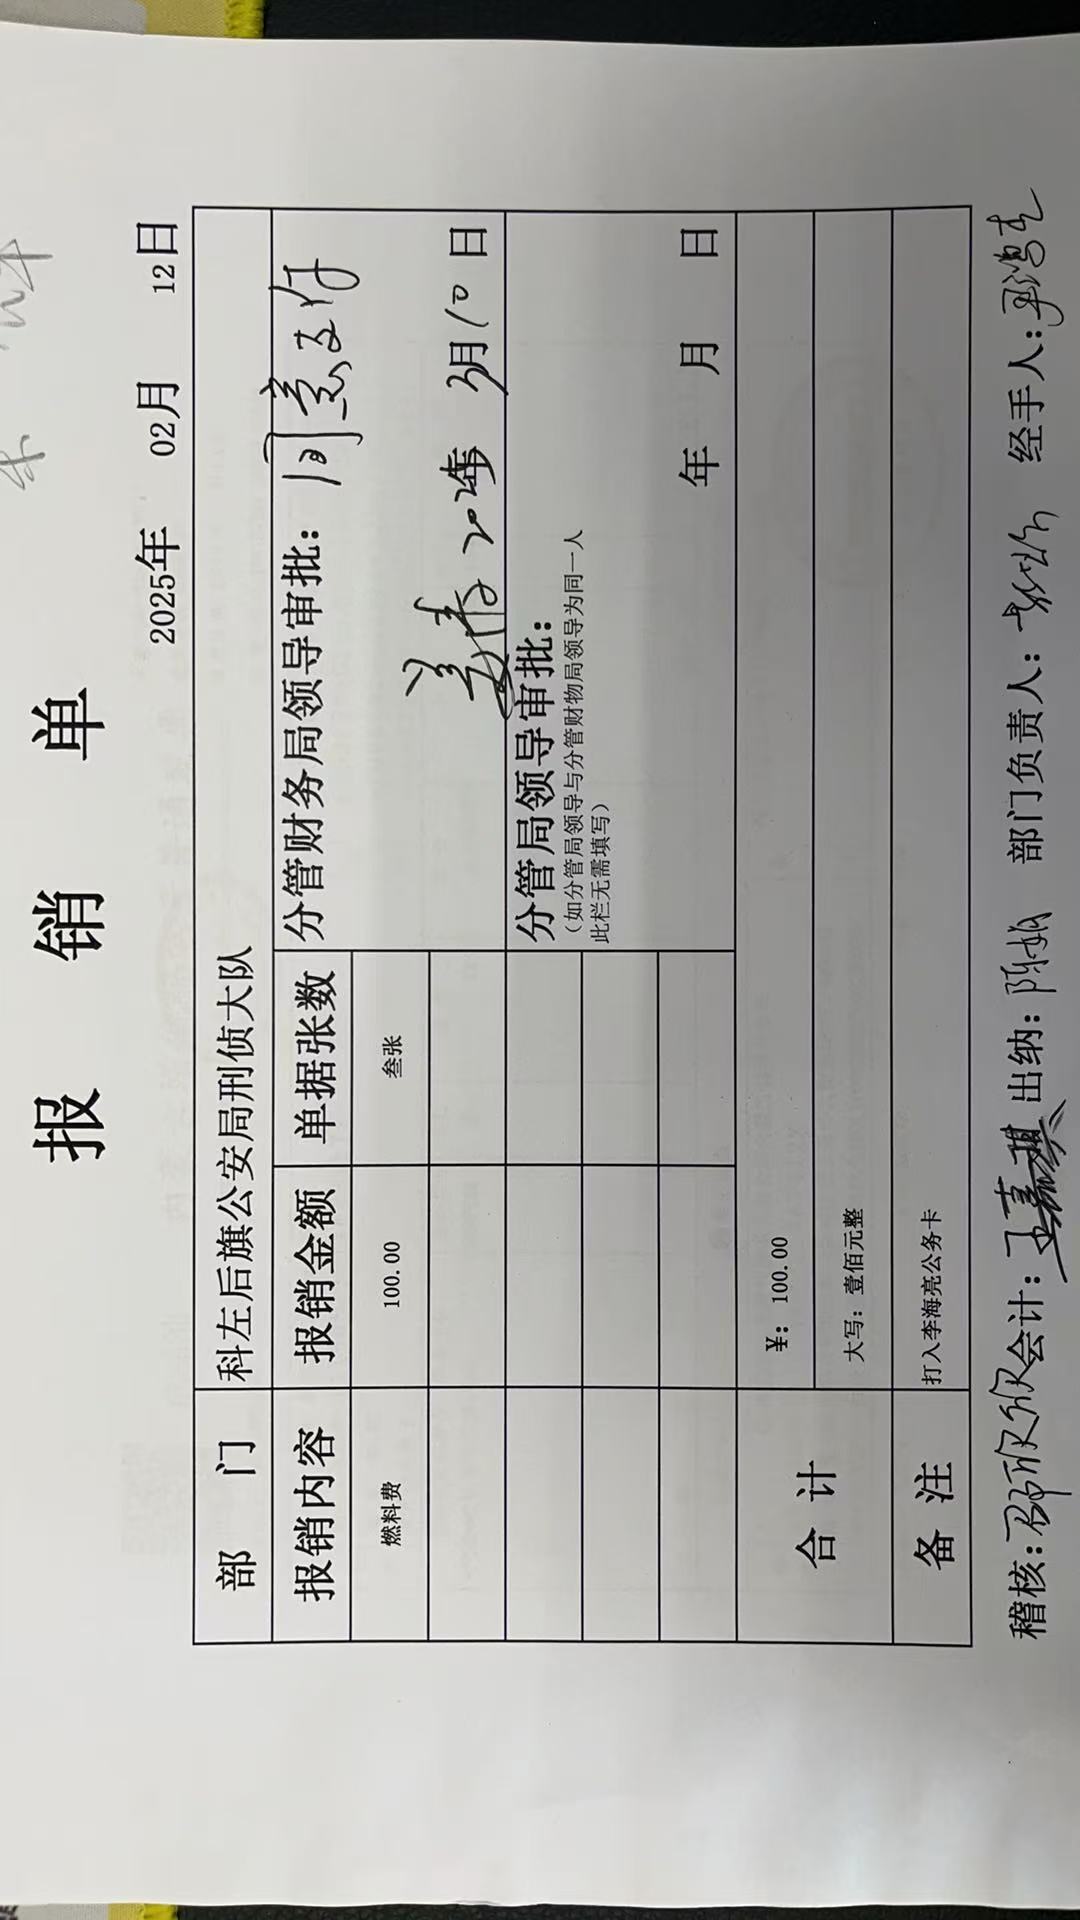 报 销 单
2025年 02月 12日
部 门 科左后旗公安局刑侦大队
报销内容 报销金额 单据张数 分管财务局领导审批： 同意支付
燃料费 100.00 叁张
年 3月10日
分管局领导审批：
（如分管局领导与分管财物局领导为同一人
此栏无需填写）
年 月 日
合 计 ¥：100.00
大写：壹佰元整
备 注 打入李海亮公务卡
稽核： 会计：王嘉琪 出纳： 部门负责人： 经手人：